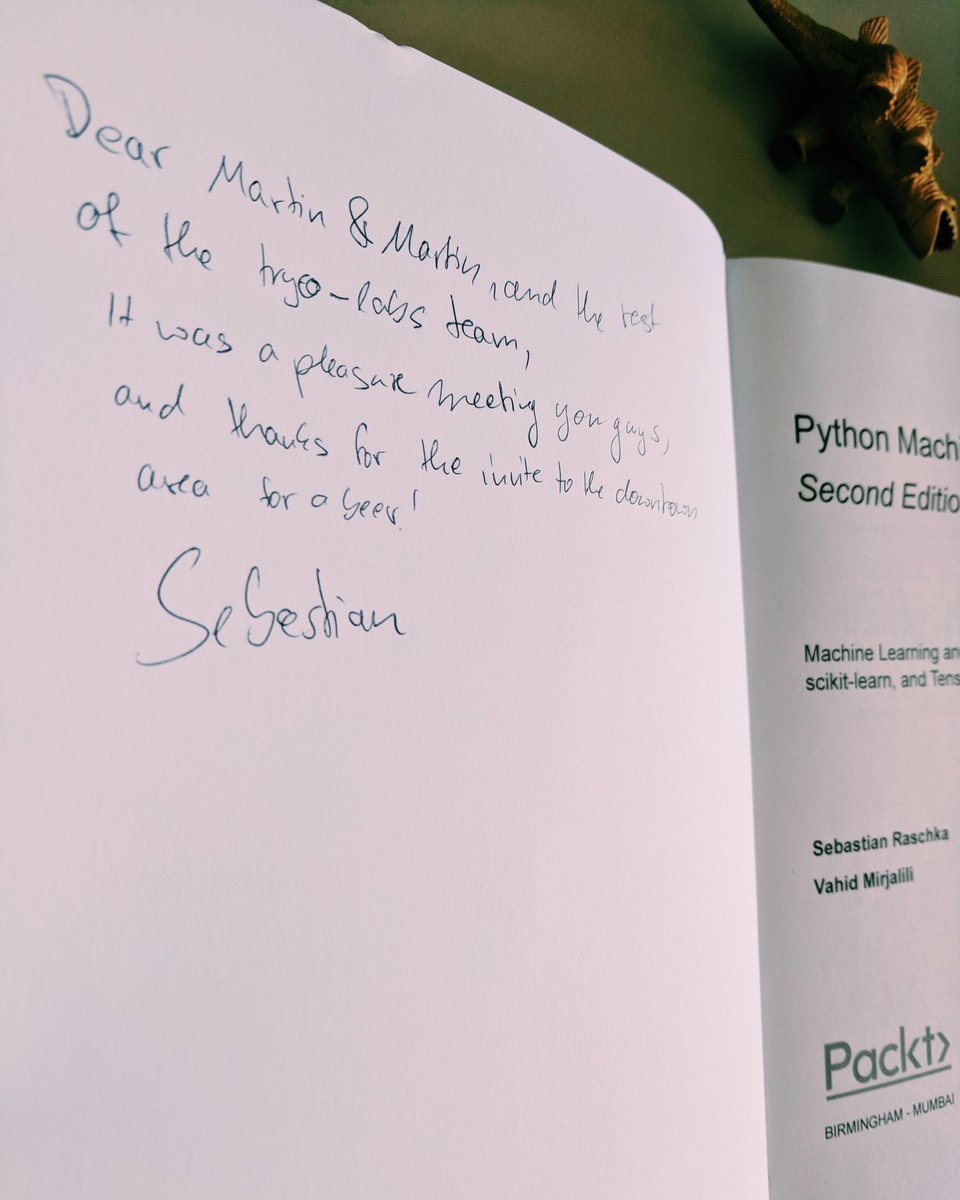 Dear Martin & Martin, and the rest
of the tryo-labs team,
It was a pleasure meeting you guys,
and thanks for the invite to the downtown
area for a beer!
Sebastian
Python Machi
Second Editio
Machine Learning an
scikit-learn, and Tens
Sebastian Raschka
Vahid Mirjalili
Packt>
BIRMINGHAM - MUMBAI